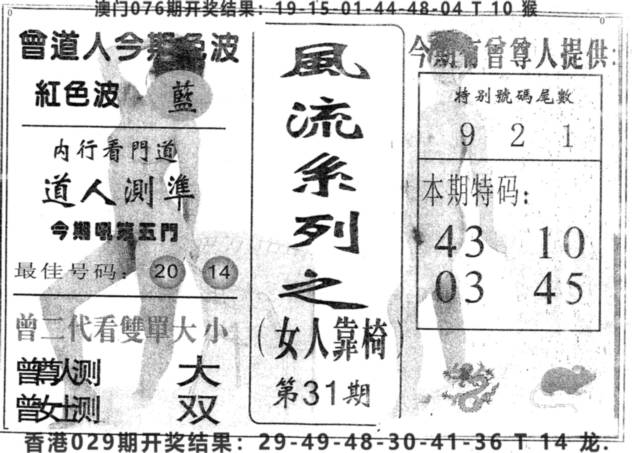 澳门076期开奖结果：19-15-01-44-48-04 T 10 猴
曾道人今期色波
紅色波 藍
内行看門道
道人測準
今期吼第五門
最佳号码：20 14
曾二代看雙單大小
曾尊人测 大
曾女士测 双
風流系列之
（女人靠椅）
第31期
今期有曾尊人提供：
特别號碼尾數
9 2 1
本期特码：
43 10
03 45
香港029期开奖结果：29-49-48-30-41-36 T 14 龙.